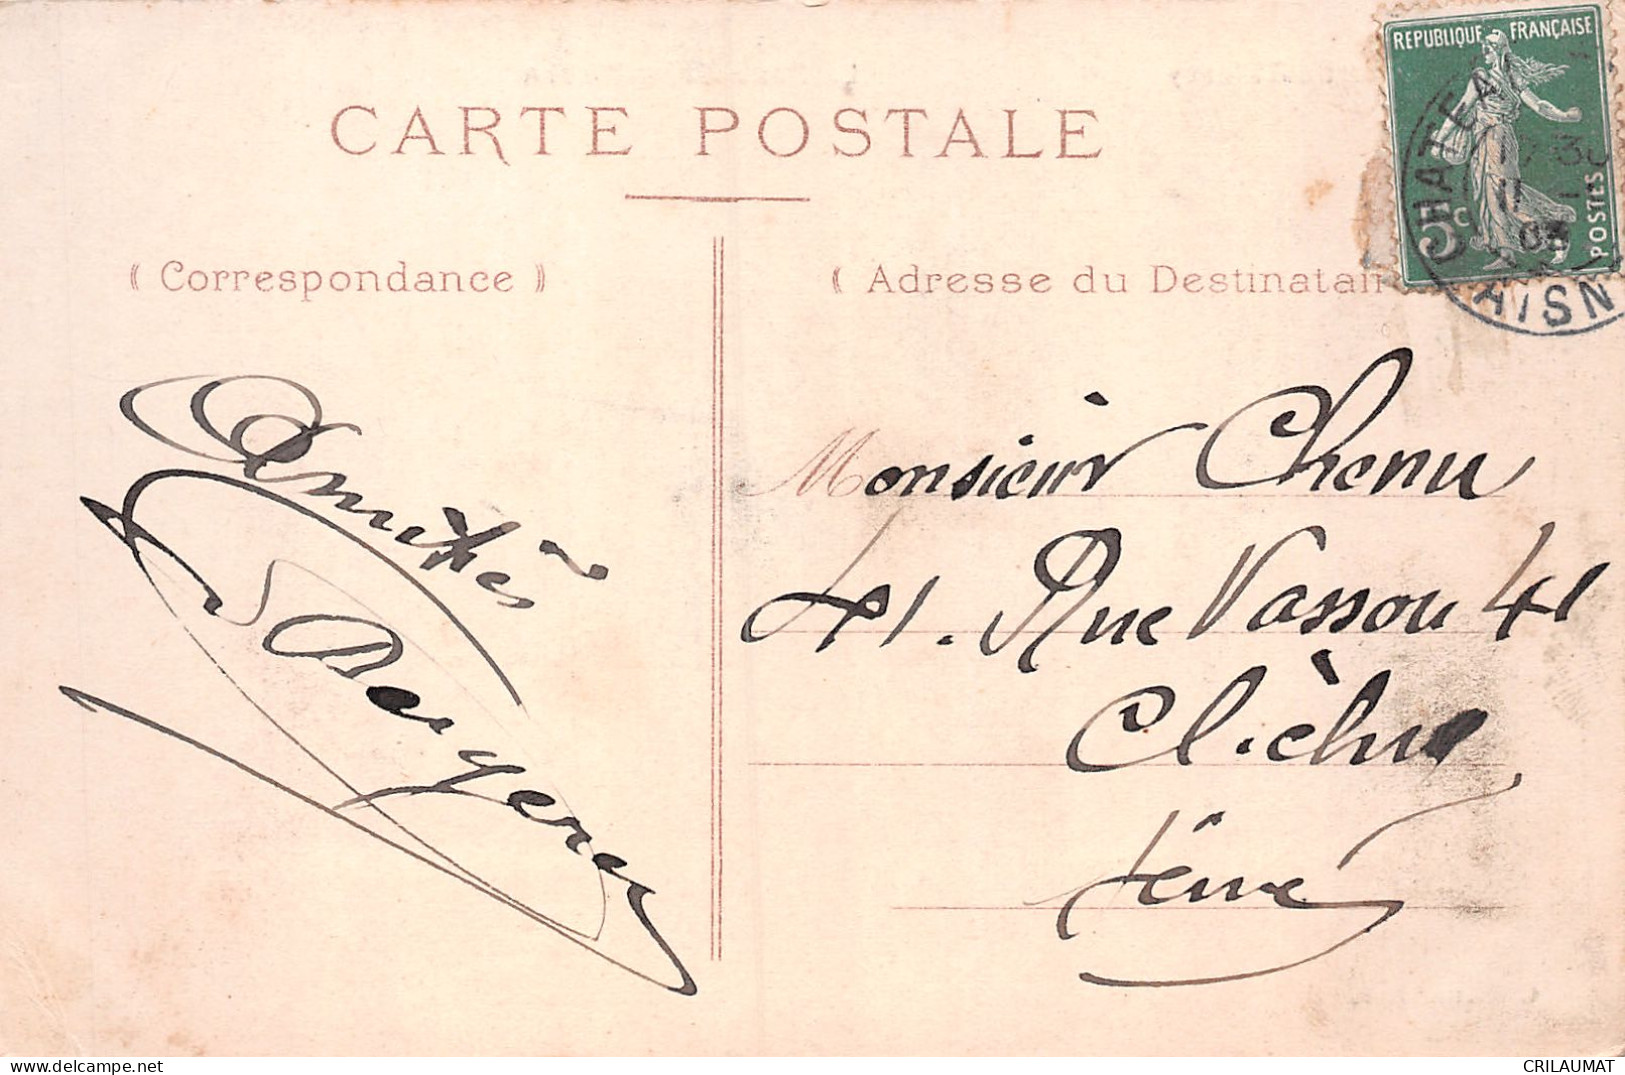 CARTE POSTALE
REPUBLIQUE FRANÇAISE
5c
POSTES
CHATEAU
AISN
( Correspondance )
( Adresse du Destinatair
Amitiés
Monsieur Chenu
41. Rue Vassou 41
Clichy
Seine
CRILAUMAT